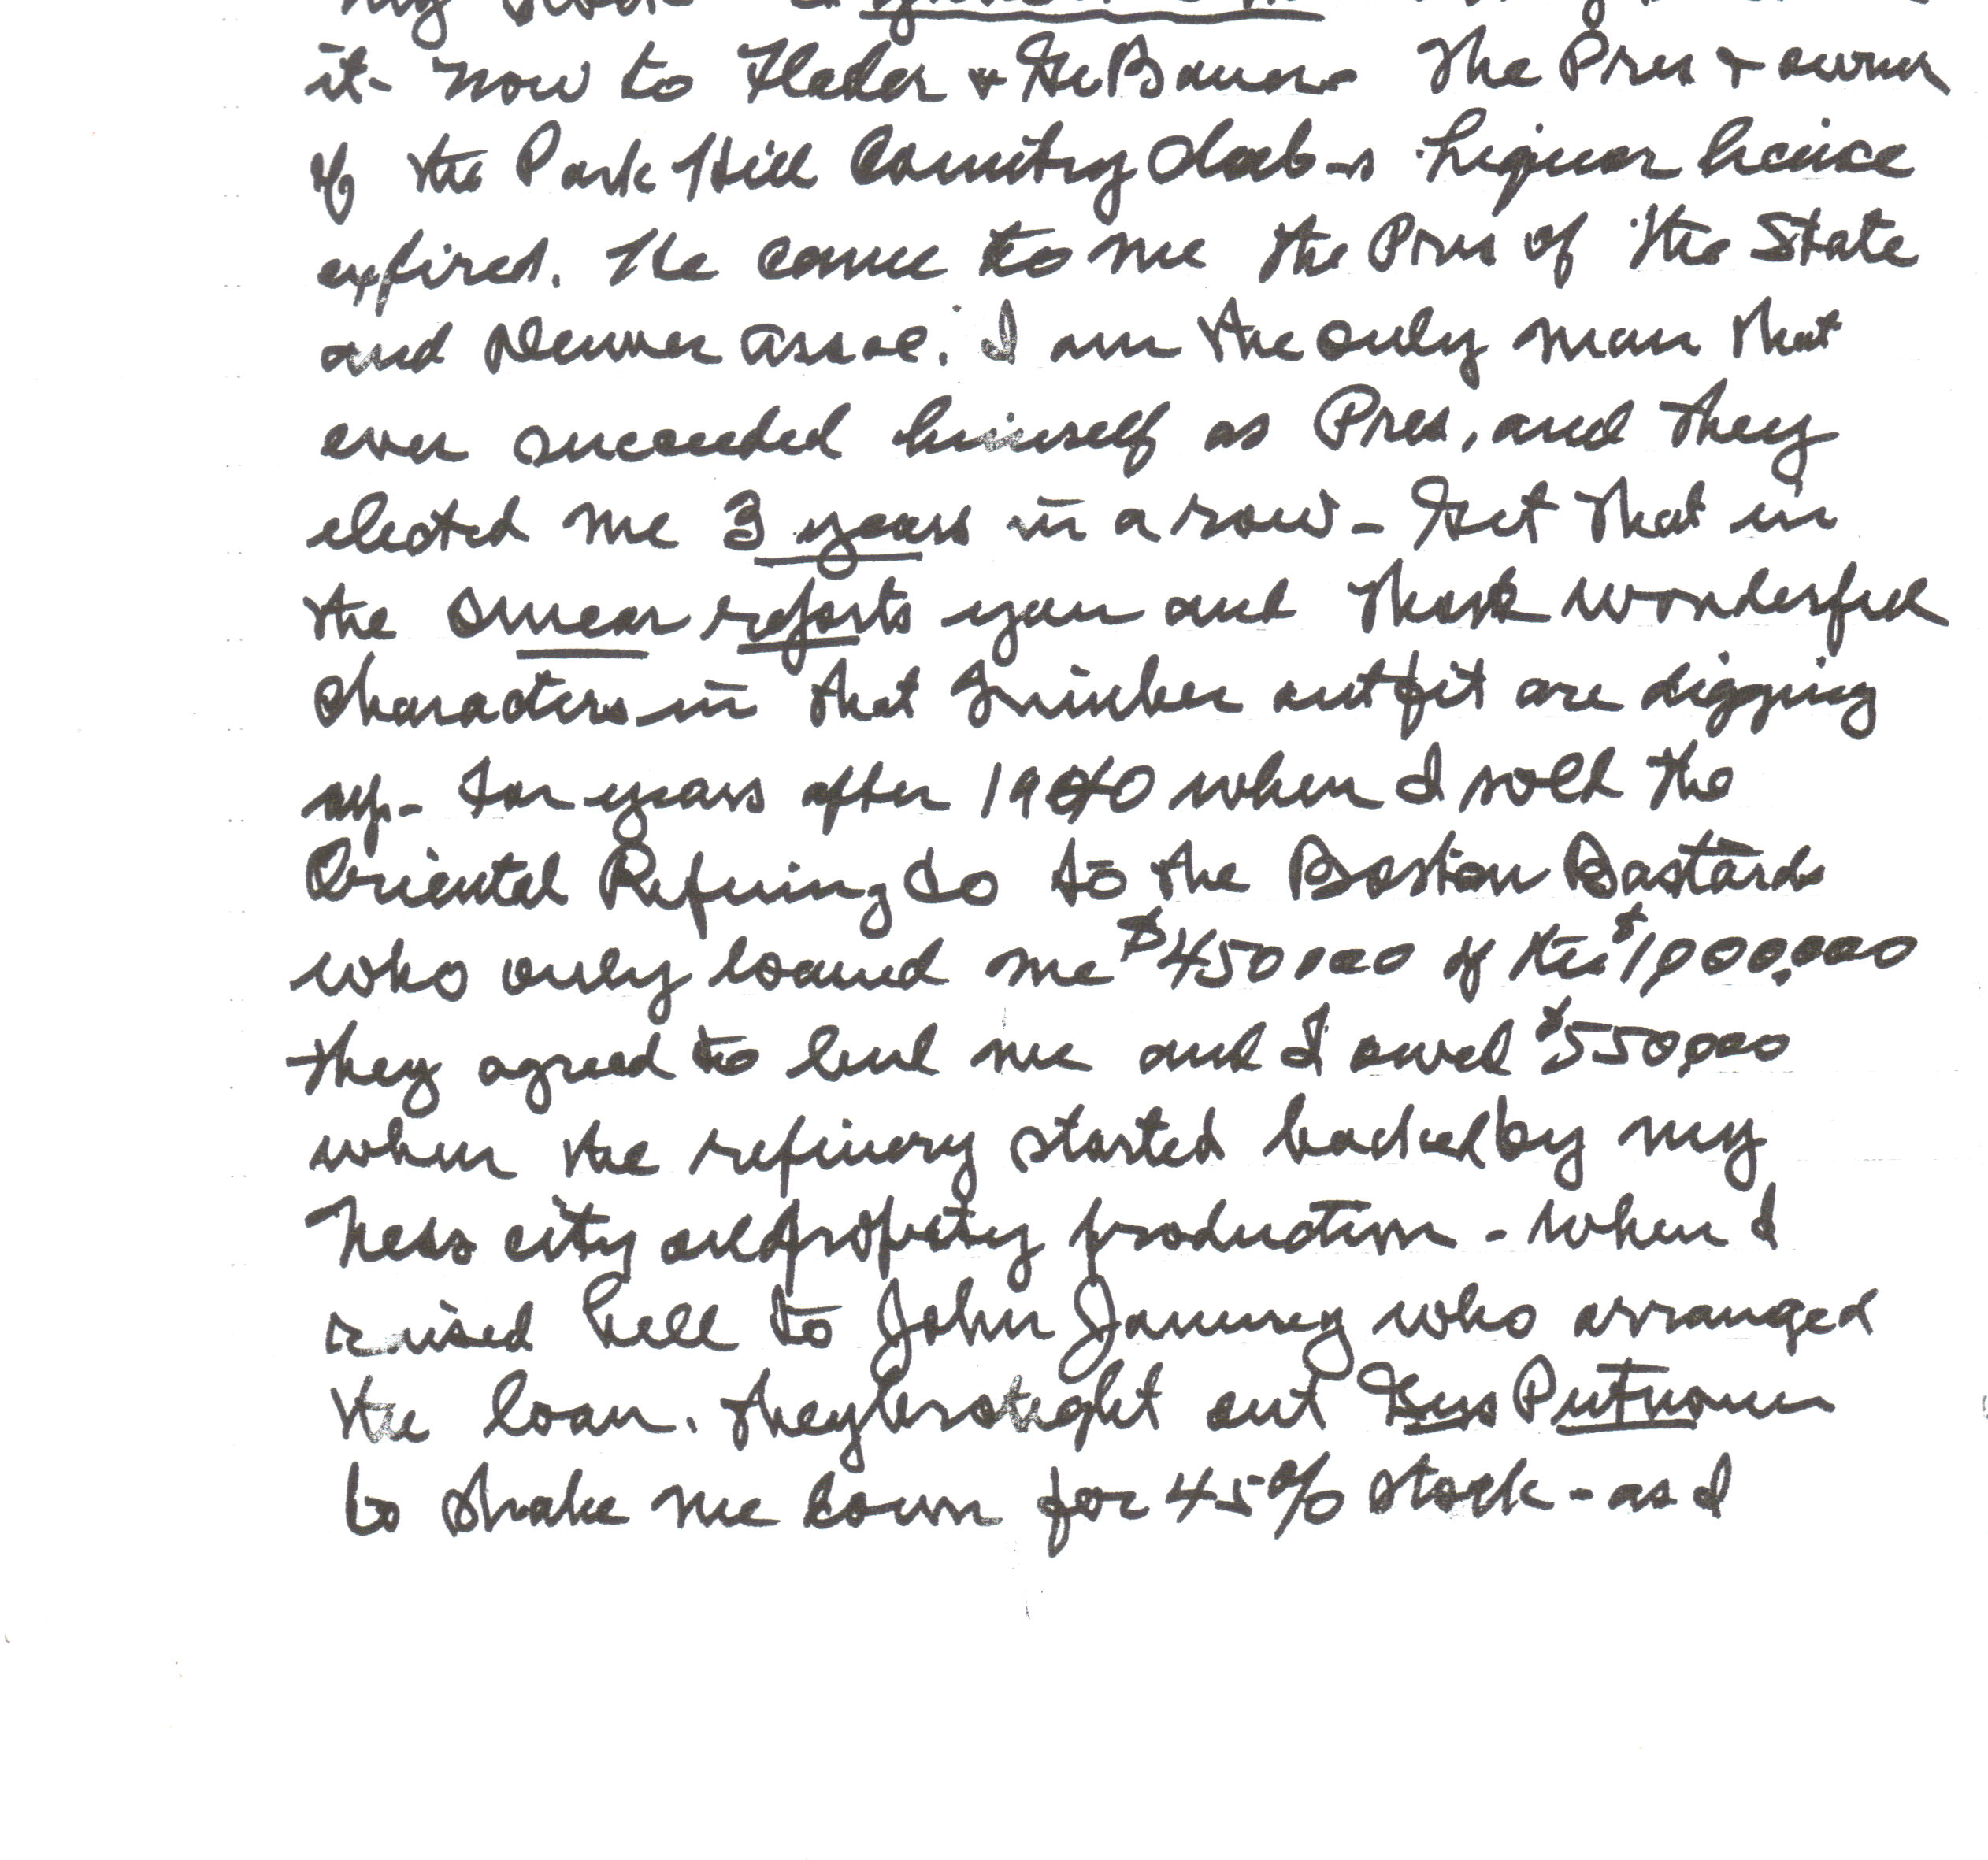 my
it - Now to & The Pres & owner
of the Park Hill Country Club-s Liquor licence
expired. He came to me the Pres of the State
and Denver Assoc. I am the only man that
ever succeeded himself as Pres, and they
elected me 3 years in a row - Get that in
the smear reports you and those wonderful
characters in that outfit are digging
up - For years after 1940 when I sold the
Oriental Refining Co to the Boston Bastards
who only loaned me $450000 of the $1,000,000
they agreed to lend me and I owed $550,000
when the refinery started backed by my
Ness city oil property production - When I
raised hell to John January who arranged
the loan. They brought out Putnam
to shake me down for 45% stock - as I